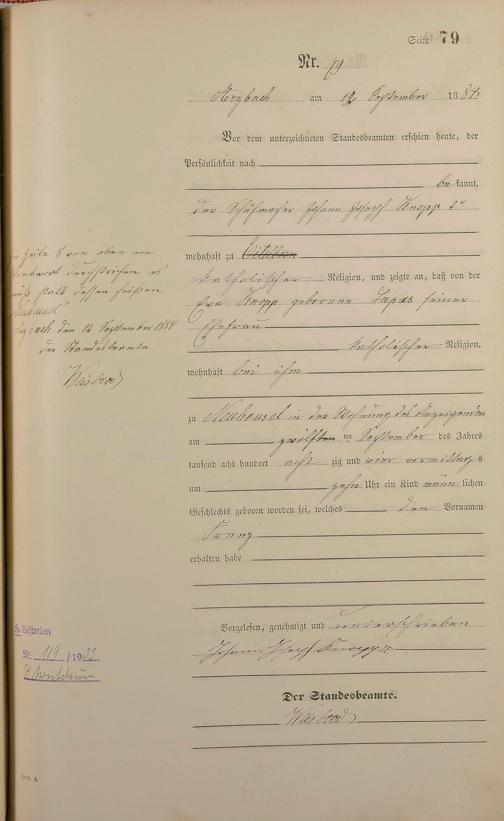 Seite 79
Nr. 79
am 12 September 1884
Vor dem unterzeichneten Standesbeamten erschien heute, der
Persönlichkeit nach
bekannt,
der Schuhmacher Johann Joseph Knopp
wohnhaft zu
katholischer Religion, und zeigte an, daß von der
Eva Knopp geborenen seiner
Ehefrau
katholischer Religion,
wohnhaft bei ihm
zu Neuhäusel in der Wohnung des Anzeigenden
am zwölften ten September des Jahres
tausend acht hundert acht zig und vier vormittags
um zehn Uhr ein Kind männlichen
Geschlechts geboren worden sei, welches den Vornamen
Franz
erhalten habe
Vorgelesen, genehmigt und unterschrieben
Johann Joseph Knopp II
Der Standesbeamte.
Zeile 8 von oben ein
durchstrichen es
statt dessen heißen
Neuhäusel
den 12 September 1884
der Standesbeamte
Gestorben
Nr. 119 / 1933
Form. A.